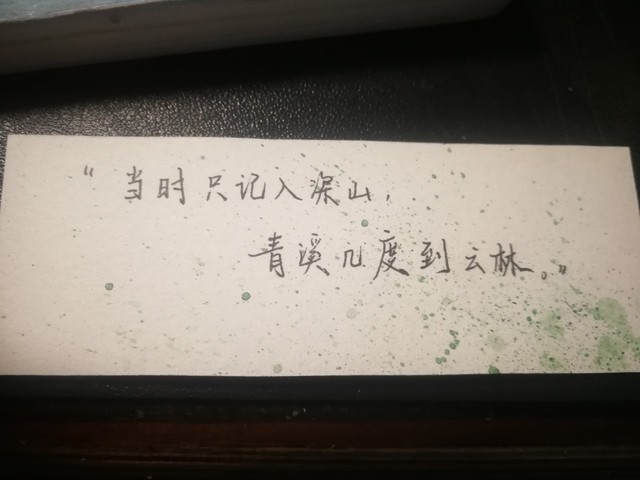 “当时只记入深山，
青溪几度到云林。”